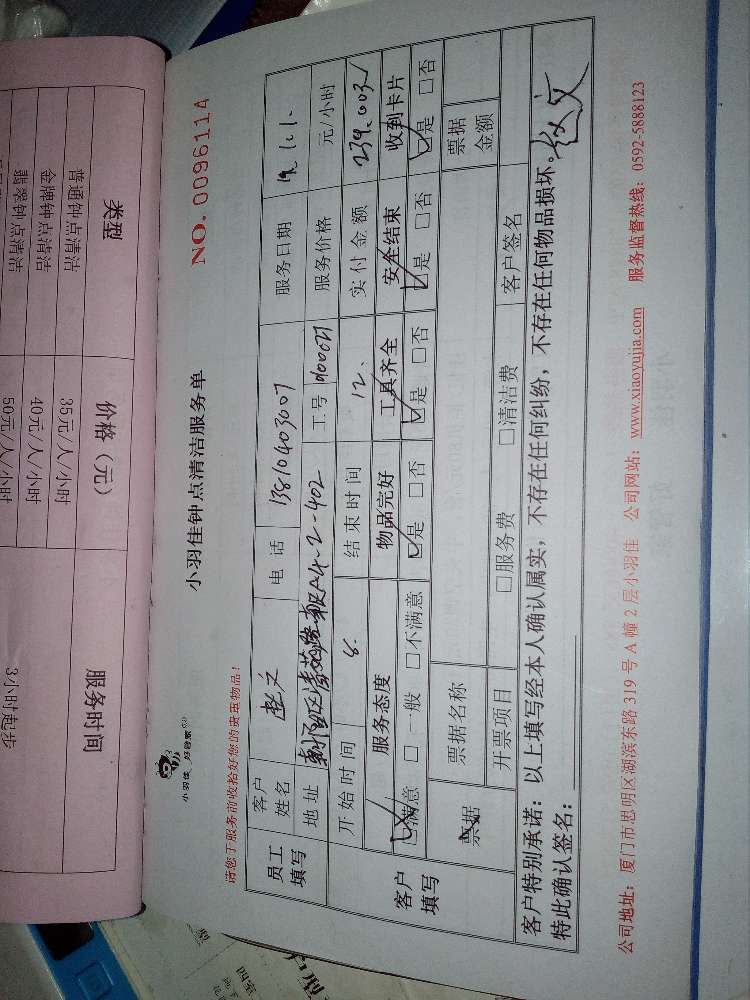 小羽佳 好管家
NO.009611A
请您于服务前收拾好您的贵重物品！
小羽佳钟点清洁服务单
员工填写 客户姓名 赵文 电话 13810403007 服务日期 19.1.1.
地址 工号 服务价格 元/小时
开始时间 8. 结束时间 12. 实付金额
客户填写 服务态度 物品完好 工具齐全 安全结束 收到卡片
☑满意 □一般 □不满意 ☑是 □否 ☑是 □否 ☑是 □否 ☑是 □否
票据 票据名称 票据金额
开票项目 □服务费 □清洁费 客户签名
客户特别承诺：以上填写经本人确认属实，不存在任何纠纷，不存在任何物品损坏。
特此确认签名： 赵文
公司地址：厦门市思明区湖滨东路 319 号 A 幢 2 层小羽佳 公司网站：www.xiaoyujia.com 服务监督热线：0592-5888123
类型 价格（元） 服务时间
普通钟点清洁 35元/人/小时
金牌钟点清洁 40元/人/小时
翡翠钟点清洁 50元/人/小时
3小时起步